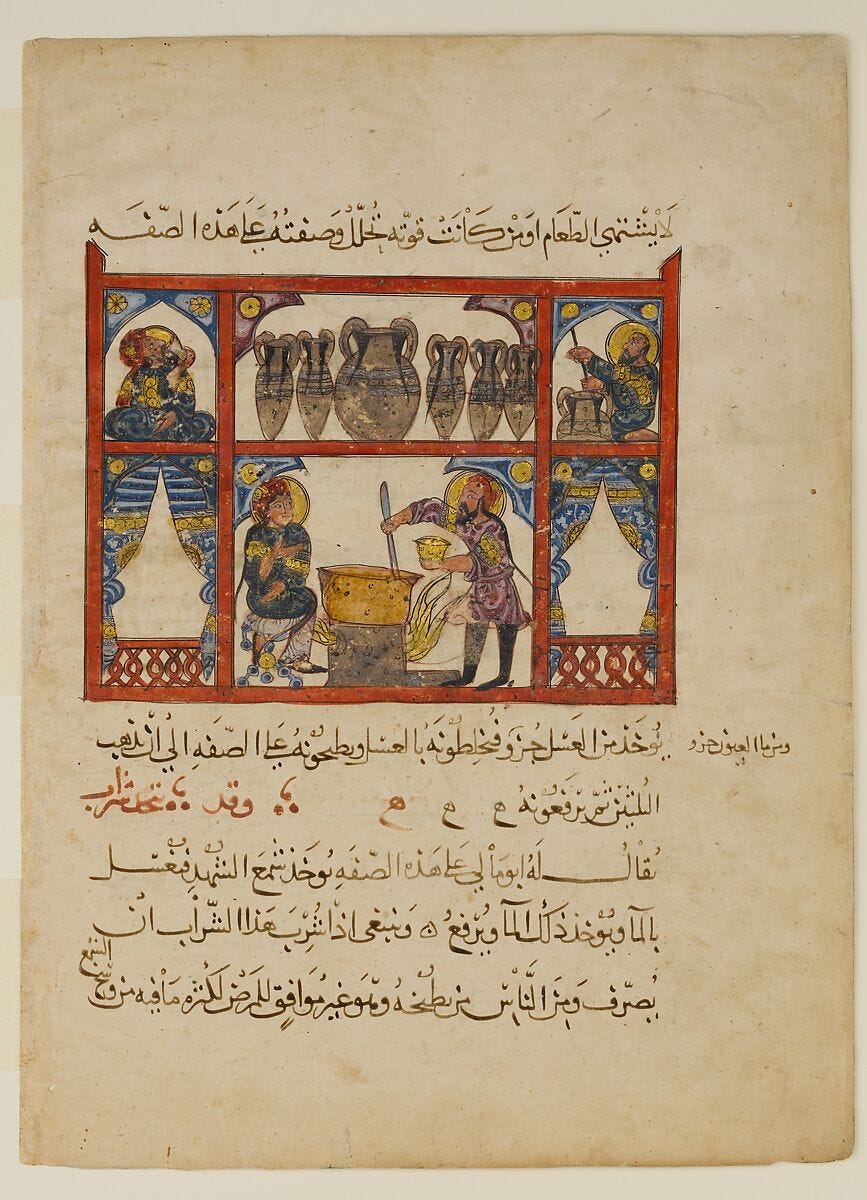 لا يشتهي الطعام او من كانت قوته تحلل وصفته على هذه الصفه
يؤخذ من العسل جزو فيخلطونه بالعسل ويطبخونه على الصفه الى ان يذهب
ومن ما العيون جزو
الثلثين ثم يرفعونه ه ه ه وقد يتخذ شراب
يقال له ابومالي على هذه الصفه يوخذ شمع الشهد فيغسل
بالما ويوخذ ذلك الما ويرفع ه وينبغي اذا شرب هذا الشراب ان
يصرف ومن الناس من يطبخه وهو غير موافق للمرض لكثره ما فيه من وسخ
الشمع